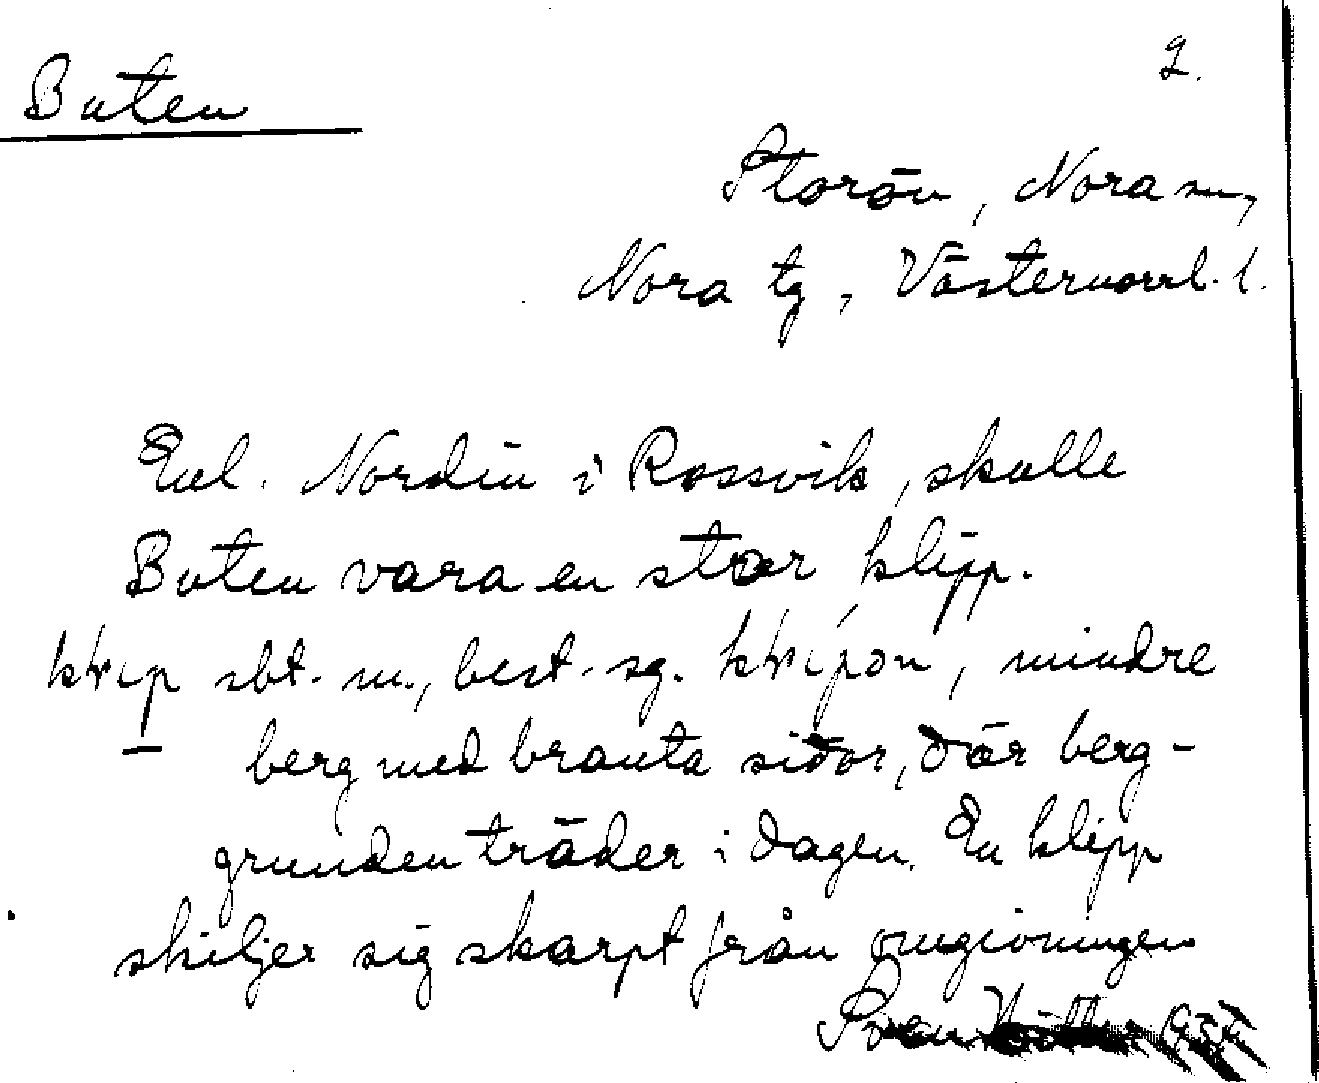 Buten
2.
Storön, Nora sn,
Nora tg, Västernorrl. l.
Enl. Nordin i Rossvik, skulle
Buten vara en stor klipp.
klip sbt. m., best. sg. klipon, mindre
berg med branta sidor, där berg-
grunden träder i dagen. En klipp
skiljer sig skarpt från omgivningen
Sven